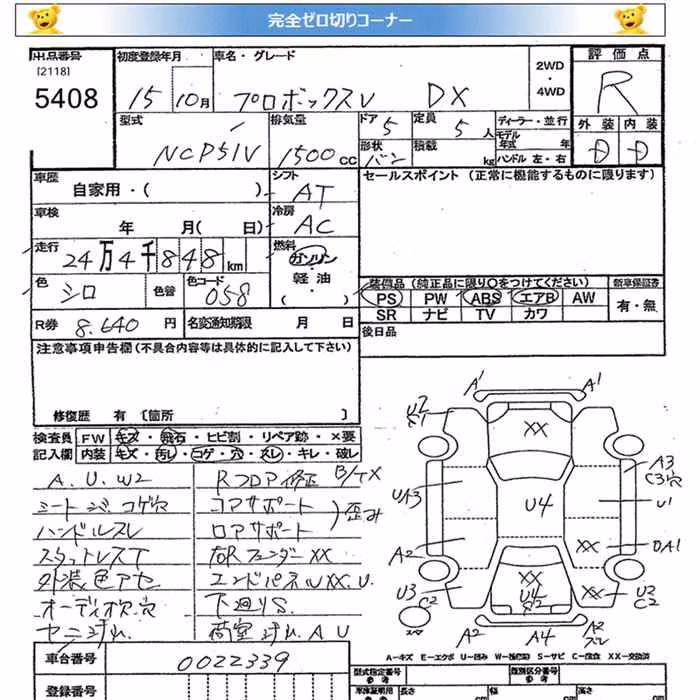 完全ゼロ切りコーナー
出品番号
[2118]
5408
初度登録年月
15 10月
車名・グレード
プロボックスV DX
2WD
・
4WD
評価点
R
型式
NCP51V
排気量
1500cc
ドア 5
定員 5人
形状 バン
積載 kg
ディーラー・並行
モデル
年式 年
ハンドル 左・右
外装 内装
D D
車歴
自家用・( )
シフト
AT
セールスポイント (正常に機能するものに限ります)
車検
年 月( 日)
冷房
AC
走行
24万4千848km
燃料
ガソリン
軽油
・( )
色
シロ
色替
色コード
058
装備品 (純正品に限り〇をつけてください)
PS PW ABS エアB AW
SR ナビ TV カワ
新車保証書
有・無
R券 8.640円
名変通知期限 月 日
後日品
注意事項申告欄(不具合内容等は具体的に記入して下さい)
修復歴 有〔箇所 〕
検査員
記入欄
FW キズ・飛石・ヒビ割・リペア跡・×要
内装 キズ・汚レ・コゲ・穴・スレ・キレ・破レ
A.U.W2
シートシミ.コゲ穴
ハンドルスレ
スタットレスT
外装色アセ
オーディオ穴.穴
Rフロア修正 B/TX
コアサポート
ロアサポート
歪み
右Rフェンダー XX
エンドパネルXX.U.
下廻りS.
荷室 A U
A' A1
U2
S1
XX
A3
C3穴
UA3
U4
U1
A2
XX
DA1
XX
U4
S2
XX
U3
C2
U2
C2
A2
A4
A2
スレ
A-キズ E-エクボ U-凹み W-補修跡 S-サビ C-腐食 XX-交換済
車台番号
0022339
登録番号
型式指定番号
参考
類別区分番号
参考
車庫証明用
参考
長さ cm
幅 cm
高さ cm